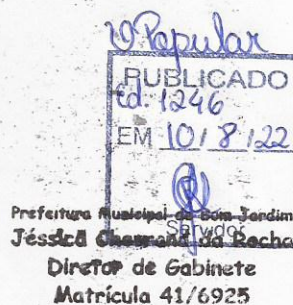 O Popular
PUBLICADO
Ed: 1246
EM 10/8/22
Servidor
Prefeitura Municipal de Bom Jardim
Jéssica da Rocha
Diretor de Gabinete
Matrícula 41/6925